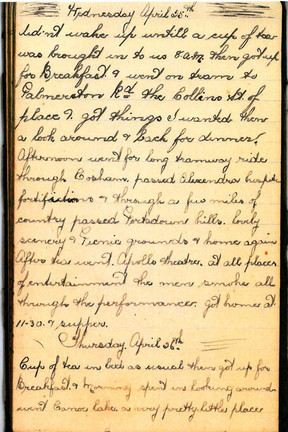 Wednesday April 25th
Didn't wake up untill a cup of tea
was brought in to us 8 a.m. then got up
for Breakfast & went on tram to
Palmerston Rd the Collins St of
place & got things I wanted then
a look around & back for dinner.
Afternoon went for long tramway ride
through Cosham, passed Alexandra hospital
fortifictions & through a few miles of
country passed Portsdown hills. lovely
scenery & Picnic grounds & home again
After tea went Apollo theatre. at all places
of entertainment the men smoke all
through the performance. got home at
11-30. & supper.
Thursday April 26th
Cup of tea in bed as usual then got up for
Breakfast. & morning spent in looking around
went Canoe lake a very pretty little place